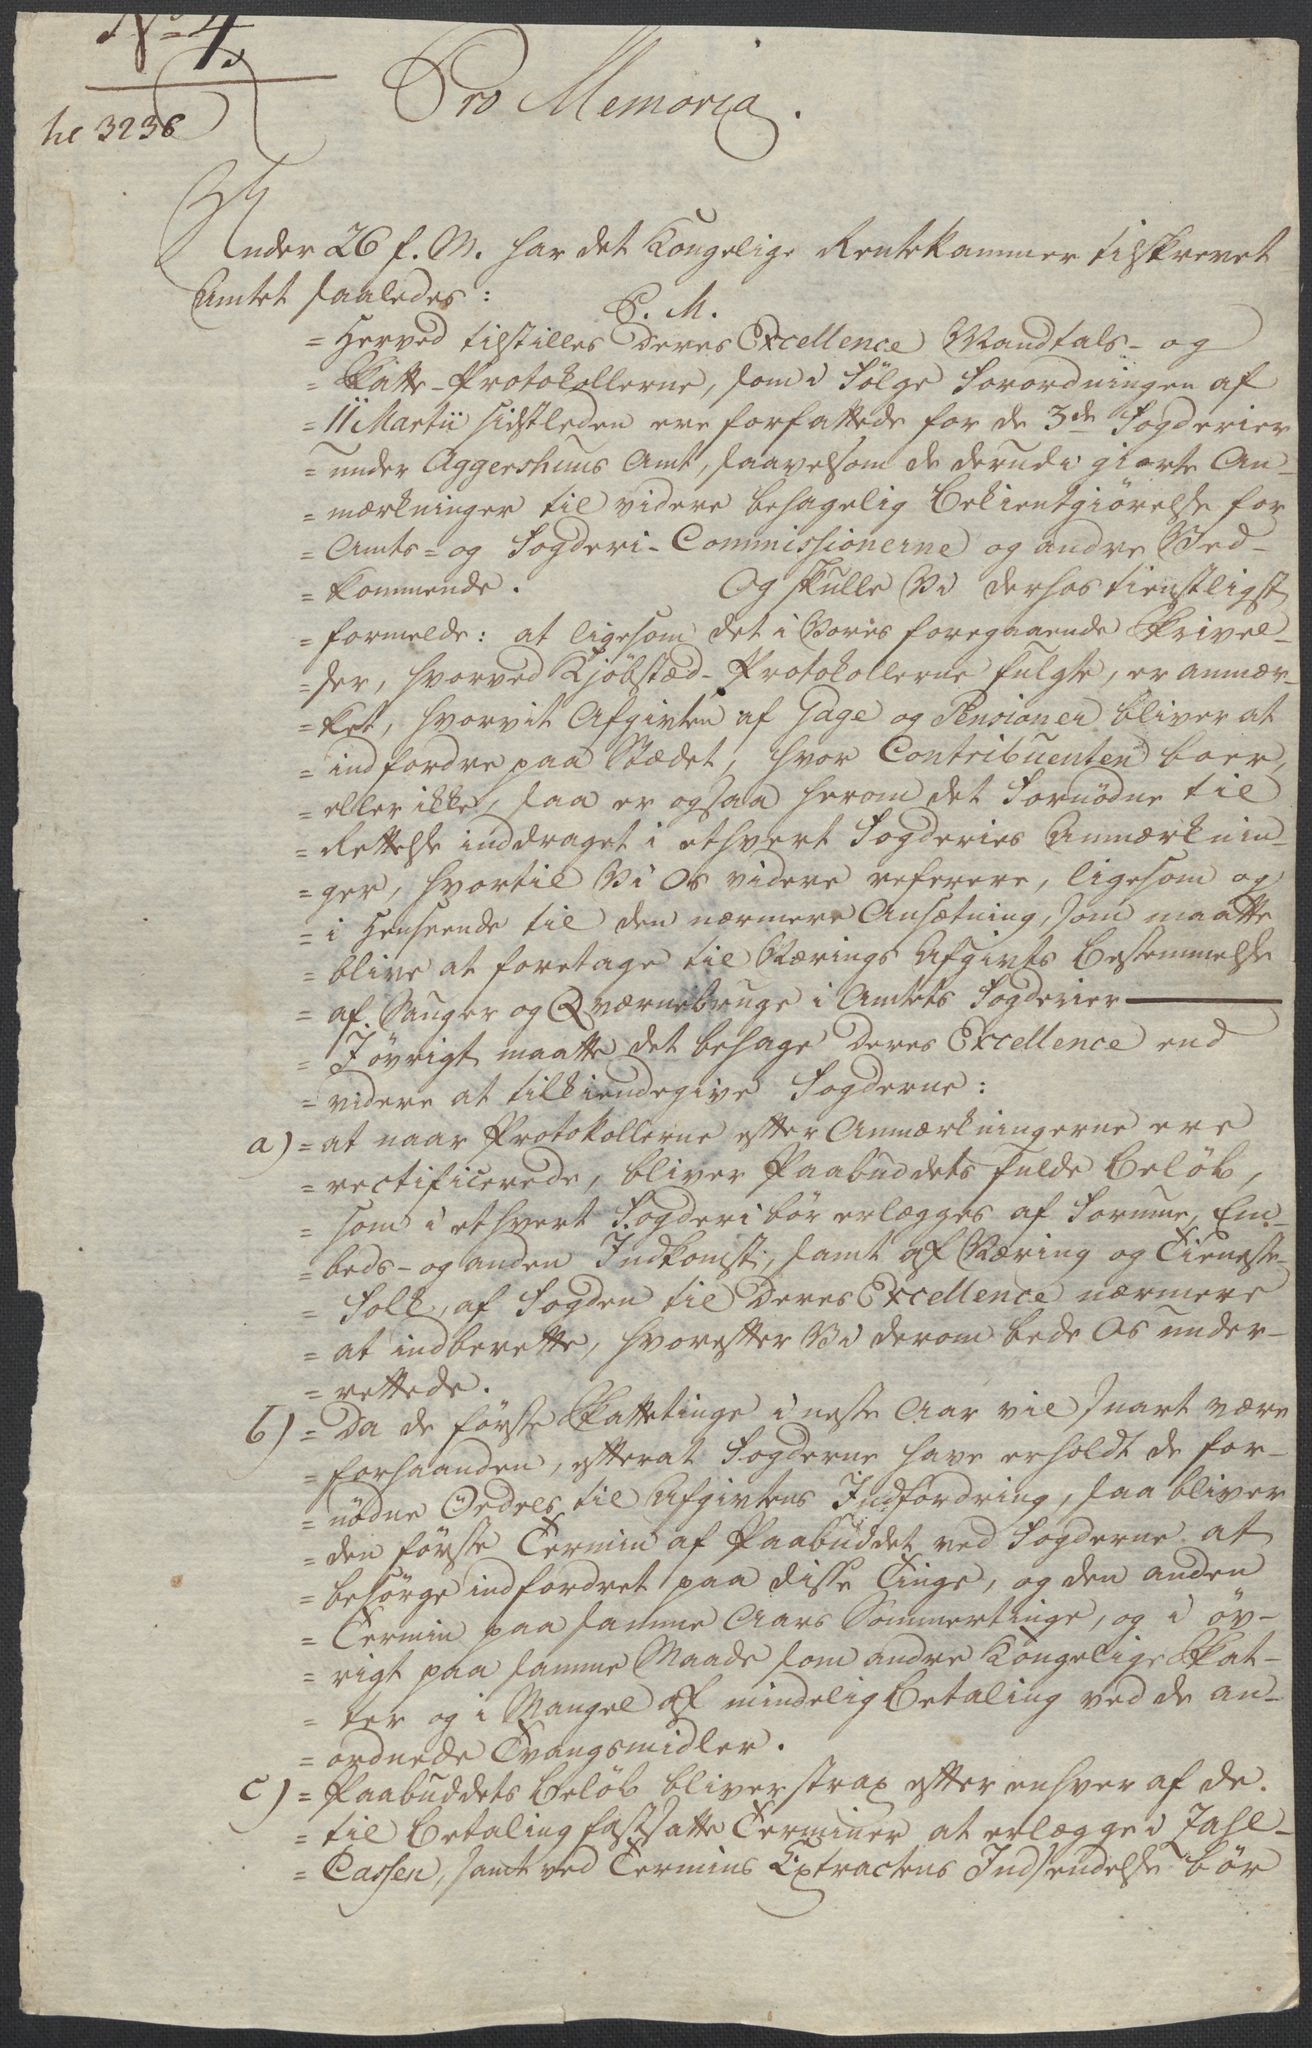 No 4
Pro Memoria.
3236
Under 26 f. M. har det Kongelige Rentekammer tilskrevet
Amtet saaledes:
P. M.
= Herved tilstilles Deres Excellence Mandtals- og
= Skatte-Protokollerne, som i Følge Forordningen af
= 11 Martii sidstleden ere forfattede for de 3de Fogderier
= under Aggershuus Amt, saavelsom de derudi giorte An-
= mærkninger til videre behagelig Bekientgiörelse for
= Amts- og Fogderi-Commissionerne og andre Ved-
= kommende. Og skulle Vi derhos tienstligst
= formelde: at ligesom det i Vores foregaaende Skrivel-
= ser, hvorved Kjöbstæd-Protokollerne fulgte, er anmær-
= ket, hvorvit Afgivten af Gage og Pensioner bliver at
= indfordre paa Stædet, hvor Contribuenten boer,
= eller ikke, saa er ogsaa herom det Fornödne til
= Rettelse inddraget i ethvert Fogderies Anmærknin-
= ger, hvortil Vi Os videre referere, ligesom og
= i Henseende til den nærmere Ansætning, som maatte
= blive at foretage til Nærings Afgivts Bestemmelse
= af Sauger og Qværnebruge i Amtets Fogderier
= I övrigt maatte det behage Deres Excellence end
= videre at tilkiendegive Fogderne:
a) = at naar Protokollerne efter Anmærkningerne ere
= rectificerede, bliver Paabuddets fulde Belöb,
= som i ethvert Fogderi bör erlægges af Formue, Em-
= beds- og anden Indkomst, samt af Næring og Tieneste-
= Folk, af Fogden til Deres Excellence nærmere
= at indberette, hvorefter Vi derom bede Os under-
= rettede.
b) = Da de förste Skattetinge i neste Aar vil snart være
= forhaanden, efterat Fogderne have erholdt de for-
= nödne Ordres til Afgivtens Indfordring, saa bliver
= den förste Termin af Paabuddet ved Fogderne at
= besörge indfordret paa disse Tinge, og den anden
= Termin paa samme Aars Sommertinge, og i öv-
= rigt paa samme Maade som andre Kongelige Skat-
= ter og i Mangel af mindelig Betaling ved de an-
= ordnede Tvangsmidler.
c) = Paabuddets Belöb bliver strax efter enhver af de
= til Betaling fastsatte Terminer at erlægge i Zahl-
= Cassen, samt ved Termins Extractens Indsendelse bör